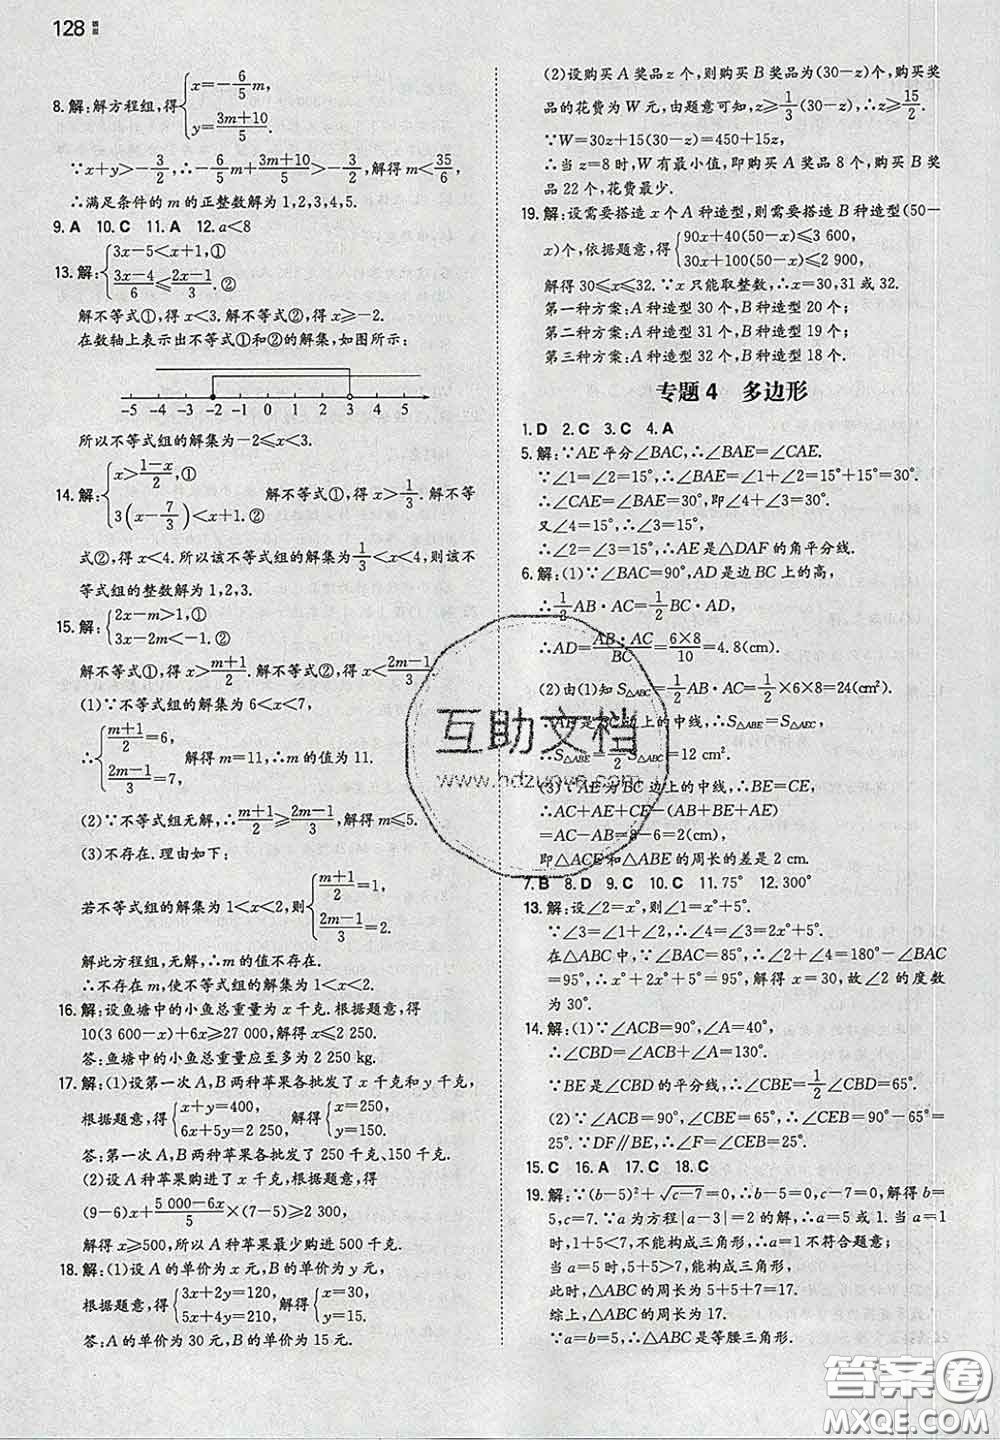 128
8. 解:解方程组,得{x=-6/5m,
y=(3m+10)/5.
∵x+y>-3/2,∴-6/5m+(3m+10)/5>-3/2,解得m<35/6,
∴满足条件的m的正整数解为1,2,3,4,5.
9. A 10. C 11. A 12. a<8
13. 解:{3x-5<x+1,①
(3x-4)/6≤(2x-1)/3.②
解不等式①,得x<3.解不等式②,得x≥-2.
在数轴上表示出不等式①和②的解集,如图所示:
-5 -4 -3 -2 -1 0 1 2 3 4 5
所以不等式组的解集为-2≤x<3.
14. 解:{x>(1-x)/2,①
3(x-7/3)<x+1.② 解不等式①,得x>1/3.解不等
式②,得x<4.所以该不等式组的解集为1/3<x<4,则该不
等式组的整数解为1,2,3.
15. 解:{2x-m>1,①
3x-2m<-1.②
解不等式①,得x>(m+1)/2.解不等式②,得x<(2m-1)/3.
(1)∵不等式组的解集为6<x<7,
∴{(m+1)/2=6,
(2m-1)/3=7, 解得m=11,∴m的值为11.
(2)∵不等式组无解,∴(m+1)/2≥(2m-1)/3,解得m≤5.
(3)不存在.理由如下:
若不等式组的解集为1<x<2,则{(m+1)/2=1,
(2m-1)/3=2.
解此方程组,无解,∴m的值不存在.
∴不存在m,使不等式组的解集为1<x<2.
16. 解:设鱼塘中的小鱼总重量为x千克.根据题意,得
10(3 600-x)+6x≥27 000,解得x≤2 250.
答:鱼塘中的小鱼总重量应至多为2 250 kg.
17. 解:(1)设第一次A,B两种苹果各批发了x千克和y千克,
根据题意,得{x+y=400,
6x+5y=2 250, 解得{x=250,
y=150.
答:第一次A,B两种苹果各批发了250千克、150千克.
(2)设A种苹果购进了x千克,根据题意,得
(9-6)x+(5 000-6x)/5×(7-5)≥2 000,
解得x≥500,所以A种苹果最少购进500千克.
18. 解:(1)设A的单价为x元,B的单价为y元,
根据题意,得{3x+2y=120,
5x+4y=210, 解得{x=30,
y=15.
答:A的单价为30元,B的单价为15元.
(2)设购买A奖品z个,则购买B奖品为(30-z)个,购买奖
品的花费为W元,由题意可知,z≥1/3(30-z),∴z≥15/2.
∵W=30z+15(30-z)=450+15z,
∴当z=8时,W有最小值,即购买A奖品8个,购买B奖
品22个,花费最少.
19. 解:设需要搭造x个A种造型,则需要搭造B种造型(50-
x)个,依据题意,得{90x+40(50-x)≤3 600,
30x+100(50-x)≤2 900,
解得30≤x≤32.∵x只能取整数,∴x=30,31或32.
第一种方案:A种造型30个,B种造型20个;
第二种方案:A种造型31个,B种造型19个;
第三种方案:A种造型32个,B种造型18个.
专题4 多边形
1. D 2. C 3. C 4. A
5. 解:∵AE平分∠BAC,∴∠BAE=∠CAE.
∵∠1=∠2=15°,∴∠BAE=∠1+∠2=15°+15°=30°.
∴∠CAE=∠BAE=30°,即∠4+∠3=30°.
又∠4=15°,∴∠3=15°,
∴∠4=∠3=15°,∴AE是△DAF的角平分线.
6. 解:(1)∵∠BAC=90°,AD是边BC上的高,
∴1/2AB·AC=1/2BC·AD,
∴AD=AB·AC/BC=6×8/10=4.8(cm).
(2)由(1)知S△ABC=1/2AB·AC=1/2×6×8=24(cm²).
∵AE是BC边上的中线,∴S△ABE=S△ACE,
∴S△ABE=1/2S△ABC=12 cm².
(3)∵AE为BC边上的中线,∴BE=CE,
∴AC+AE+CE-(AB+BE+AE)
=AC-AB=8-6=2(cm),
即△ACE和△ABE的周长的差是2 cm.
7. B 8. D 9. C 10. C 11. 75° 12. 300°
13. 解:设∠2=x°,则∠1=x°+5°.
∵∠3=∠1+∠2,∴∠4=∠3=2x°+5°.
在△ABC中,∵∠BAC=85°,∴∠2+∠4=180°-∠BAC
=95°,∴x°+2x°+5°=95°,解得x=30,故∠2的度数
为30°.
14. 解:(1)∵∠ACB=90°,∠A=40°,
∴∠CBD=∠ACB+∠A=130°.
∵BE是∠CBD的平分线,∴∠CBE=1/2∠CBD=65°.
(2)∵∠ACB=90°,∠CBE=65°,∴∠CEB=90°-65°=
25°.∵DF∥BE,∴∠F=∠CEB=25°.
15. C 16. A 17. C 18. C
19. 解:∵(b-5)²+√(c-7)=0,∴b-5=0,c-7=0,解得b=
5,c=7.∵a为方程|a-3|=2的解,∴a=5或1.当a=1
时,1+5<7,不能构成三角形,∴a=1不符合题意;
当a=5时,5+5>7,能构成三角形,
此时,△ABC的周长为5+5+7=17.
综上,△ABC的周长为17.
∵a=b=5,∴△ABC是等腰三角形.
互助文档
www.hdzuoye.com
答案圈
MXQE.COM